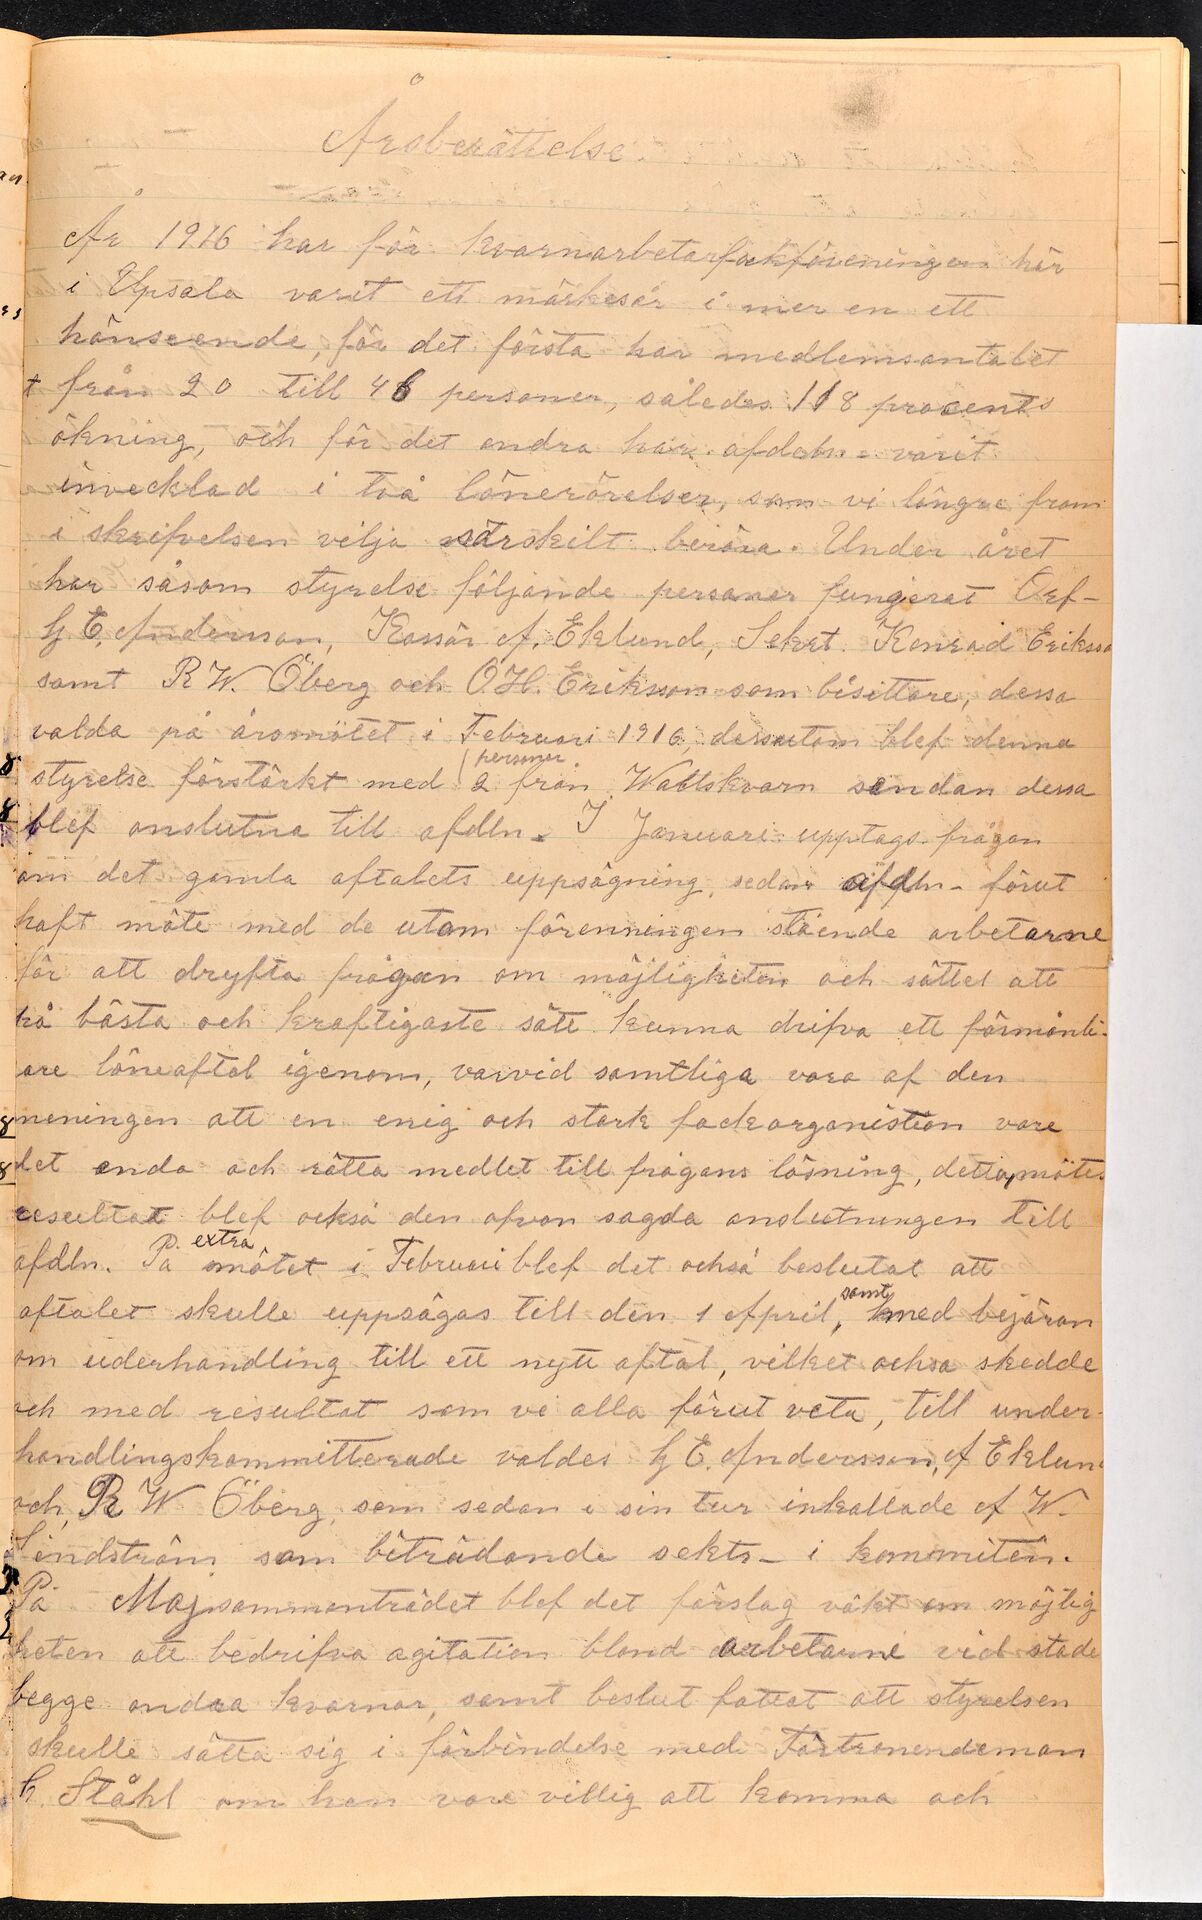 Årsberättelse.
År 1916 har för kvarnarbetarfackföreningen här
i Upsala varit ett märkesår i mer en ett
hänseende, för det första har medlemsantalet
från 20 till 46 personer, således 118 procents
ökning, och för det andra har afdeln. varit
invecklad i två lönerörelser, som vi längre fram
i skrifvelsen vilja särskilt beröra. Under året
har såsom styrelse följande personer fungerat Orf-
G E. Anderson, Kassör A. Eklund, Sekrt. Konrad Eriksso
samt R W. Öberg och O H. Eriksson som bisittare, dessa
valda på årsmötet i Februari 1916, dessutom blef denna
personer
styrelse förstärkt med 2 från Wattskvarn sendan dessa
blef anslutna till afdln. I Januari upptags frågan
om det gamla aftalets uppsägning, sedan afdln- förut
haft möte med de utom förenningen stående arbetarne
för att dryfta frågan om möjligheten och sättet att
på bästa och kraftigaste sätt kunna drifva ett förmånli-
are löneaftal igenom, varvid samtliga vara af den
meningen att en enig och stark fackorganistion vare
det enda och rätta medlet till frågans lösning, detta mötes
resultat blef också den ofvan sagda anslutningen till
extra
afdln. På mötet i Februari blef det också beslutat att
samt
aftalet skulle uppsägas till den 1 April, med bejäran
om uderhandling till ett nytt aftal, vilket ochså skedde
och med resultat som vi alla förut veta, till under-
handlingskommitterade valdes G E. Andersson, A Eklun
och R W Öberg, som sedan i sin tur inkallade A W.
Lindström som biträdande sekts- i kommiten.
På Majsammanträdet blef det förslag väkt om möjlig
heten att bedrifva agitation bland arbetarne vid stade
begge andra kvarnar, samt beslut fattat att styrelsen
skulle sätta sig i förbindelse med Förtronendeman
C. Ståhl om han vore villig att komma och